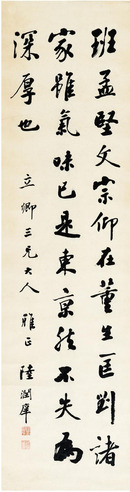 班孟堅文宗仰在董生匡劉諸
家雖氣味已是東京然不失為
深厚也
立卿三兄大人 雅正 陸潤庠